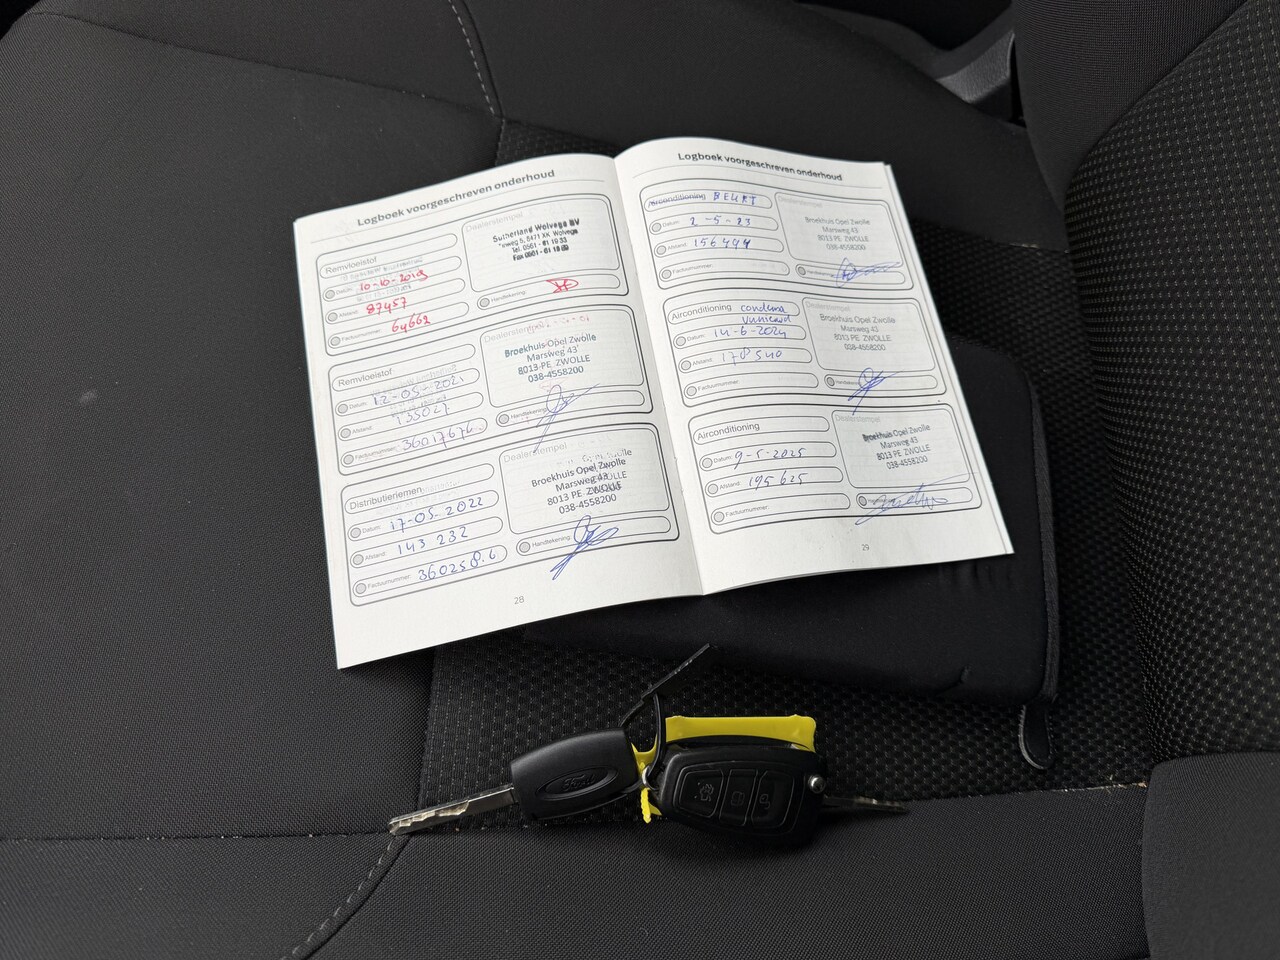 Logboek voorgeschreven onderhoud
Remvloeistof
Datum: 10-10-2019
Afstand: 87457
Factuurnummer: 64662
Dealerstempel
Sutherland Wolvega BV
Tel. 0561 - 61 10 33
Handtekening:
Remvloeistof
Datum: 12-05-2021
Afstand:
Factuurnummer:
Dealerstempel
Broekhuis Opel Zwolle
Marsweg 43
8013 PE ZWOLLE
038-4558200
Handtekening:
Distributieriemen
Datum: 17-05-2022
Afstand: 143 232
Factuurnummer:
Dealerstempel
Broekhuis Opel Zwolle
Marsweg 43
8013 PE ZWOLLE
038-4558200
Handtekening:
28
Logboek voorgeschreven onderhoud
Airconditioning BEURT
Datum: 2-5-23
Afstand:
Factuurnummer:
Dealerstempel
Broekhuis Opel Zwolle
Marsweg 43
8013 PE ZWOLLE
038-4558200
Airconditioning
Datum: 14-6-2024
Afstand: 178540
Factuurnummer:
Dealerstempel
Broekhuis Opel Zwolle
Marsweg 43
8013 PE ZWOLLE
038-4558200
Airconditioning
Datum: 9-5-2025
Afstand: 195625
Factuurnummer:
Dealerstempel
Broekhuis Opel Zwolle
Marsweg 43
8013 PE ZWOLLE
038-4558200
29
Ford